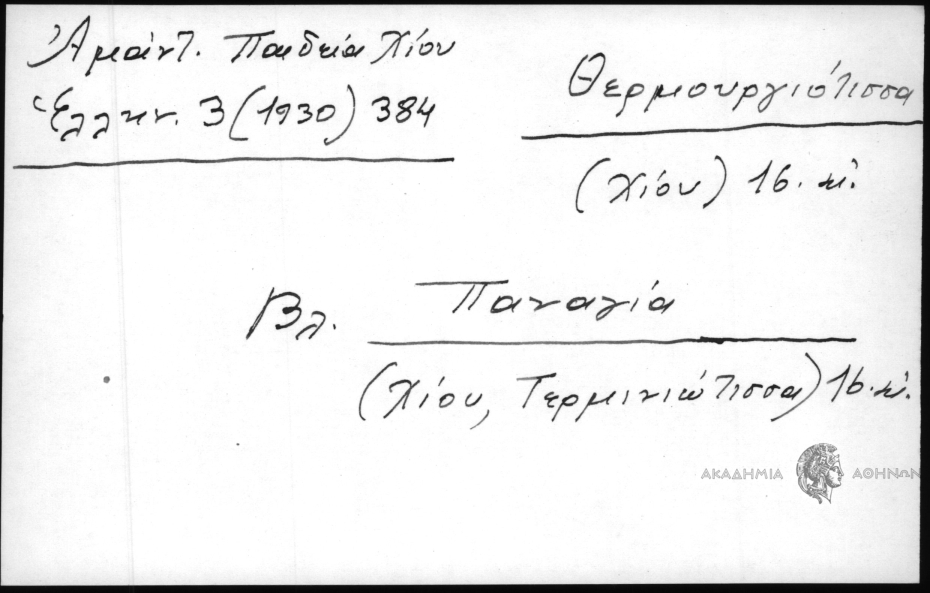 Ἀμάντ. Παιδεία Χίου
Ἑλλην. 3 (1930) 384
Θερμουργιότισσα
(Χίου) 16. κέ.
Βλ. Παναγία
(Χίου, Τερμινιώτισσα) 16. κέ.
ΑΚΑΔΗΜΙΑ ΑΘΗΝΩΝ